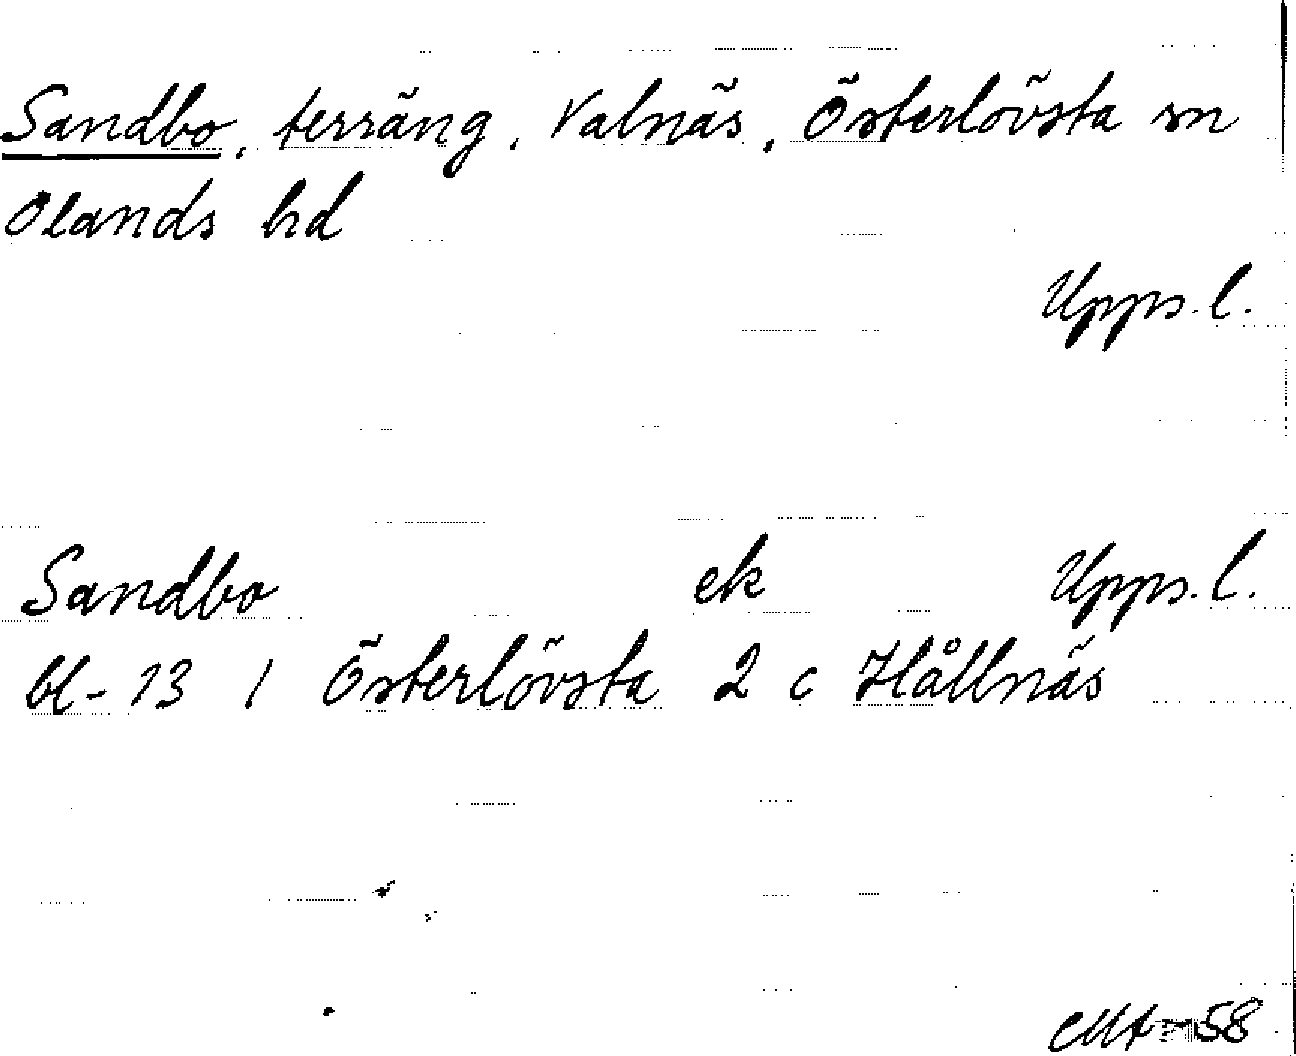 Sandbo, terräng, Valnäs, Österlövsta sn
Olands hd
Upps. l.
Sandbo ek Upps. l.
bl- 13 I Österlövsta 2 c Hållnäs
58